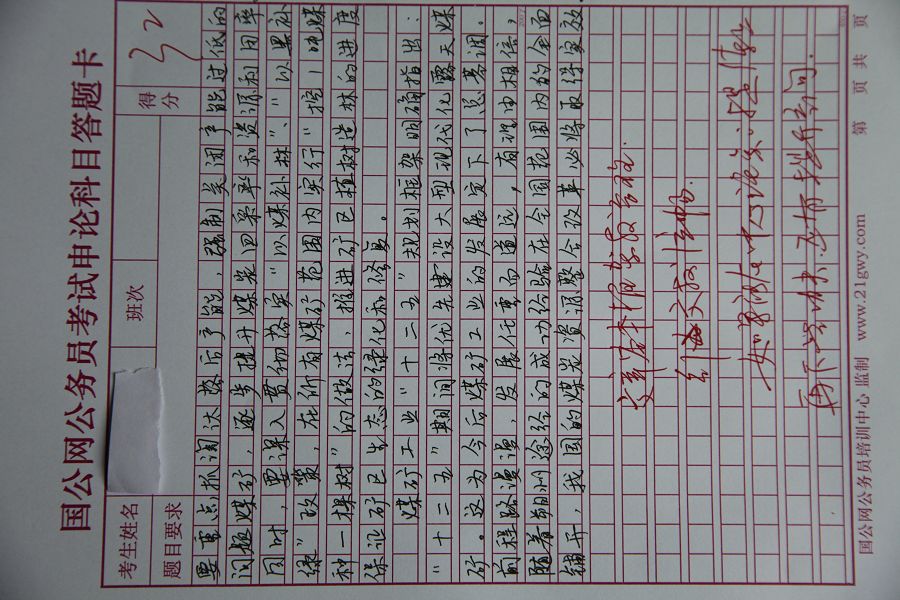 国公网公务员考试申论科目答题卡
考生姓名
班次
得分
32
题目要求
要重点抓淘汰落后产能，强制关闭产能过低的
问题煤矿，逐步提升煤炭回采率和资源利用率
同时，要深入贯彻落实“以煤补林”、“以黑补
绿”政策，在所有煤矿范围内实行“挖1吨煤
种一棵树”的做法，推进矿区植树造林的进度
保证矿区生态的绿化和修复。
煤矿工业“十二五”规划框架明确指出：
“十二五”期间将优先建设大型现代化露天煤
矿。这为今后煤矿工业的发展定下了总基调。
前程路漫漫，发展任重而道远，有理由相信，
随着朔州途径的成功经验在全国范围内的全面
铺开，我国的煤炭资源整合改革必将取得实效
文章
行文
如
再下
国公网公务员培训中心 监制 www.21gwy.com 第 页 共 页